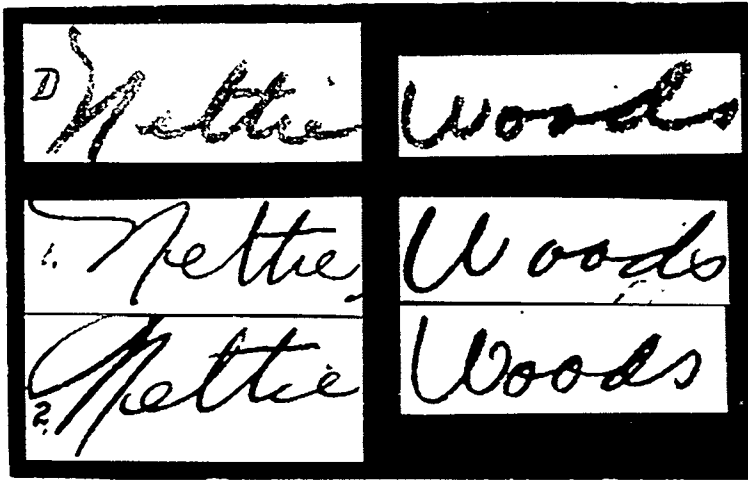 D Nettie Woods
1. Nettie Woods
2. Nettie Woods